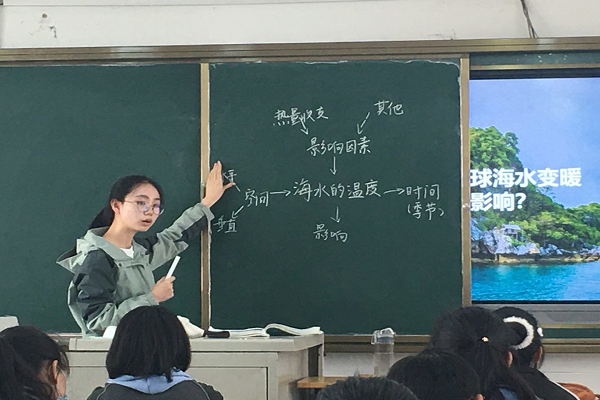 热量收支
其他
影响因素
空间
海水的温度
时间
(季节)
垂直
影响
球海水变暖
影响?